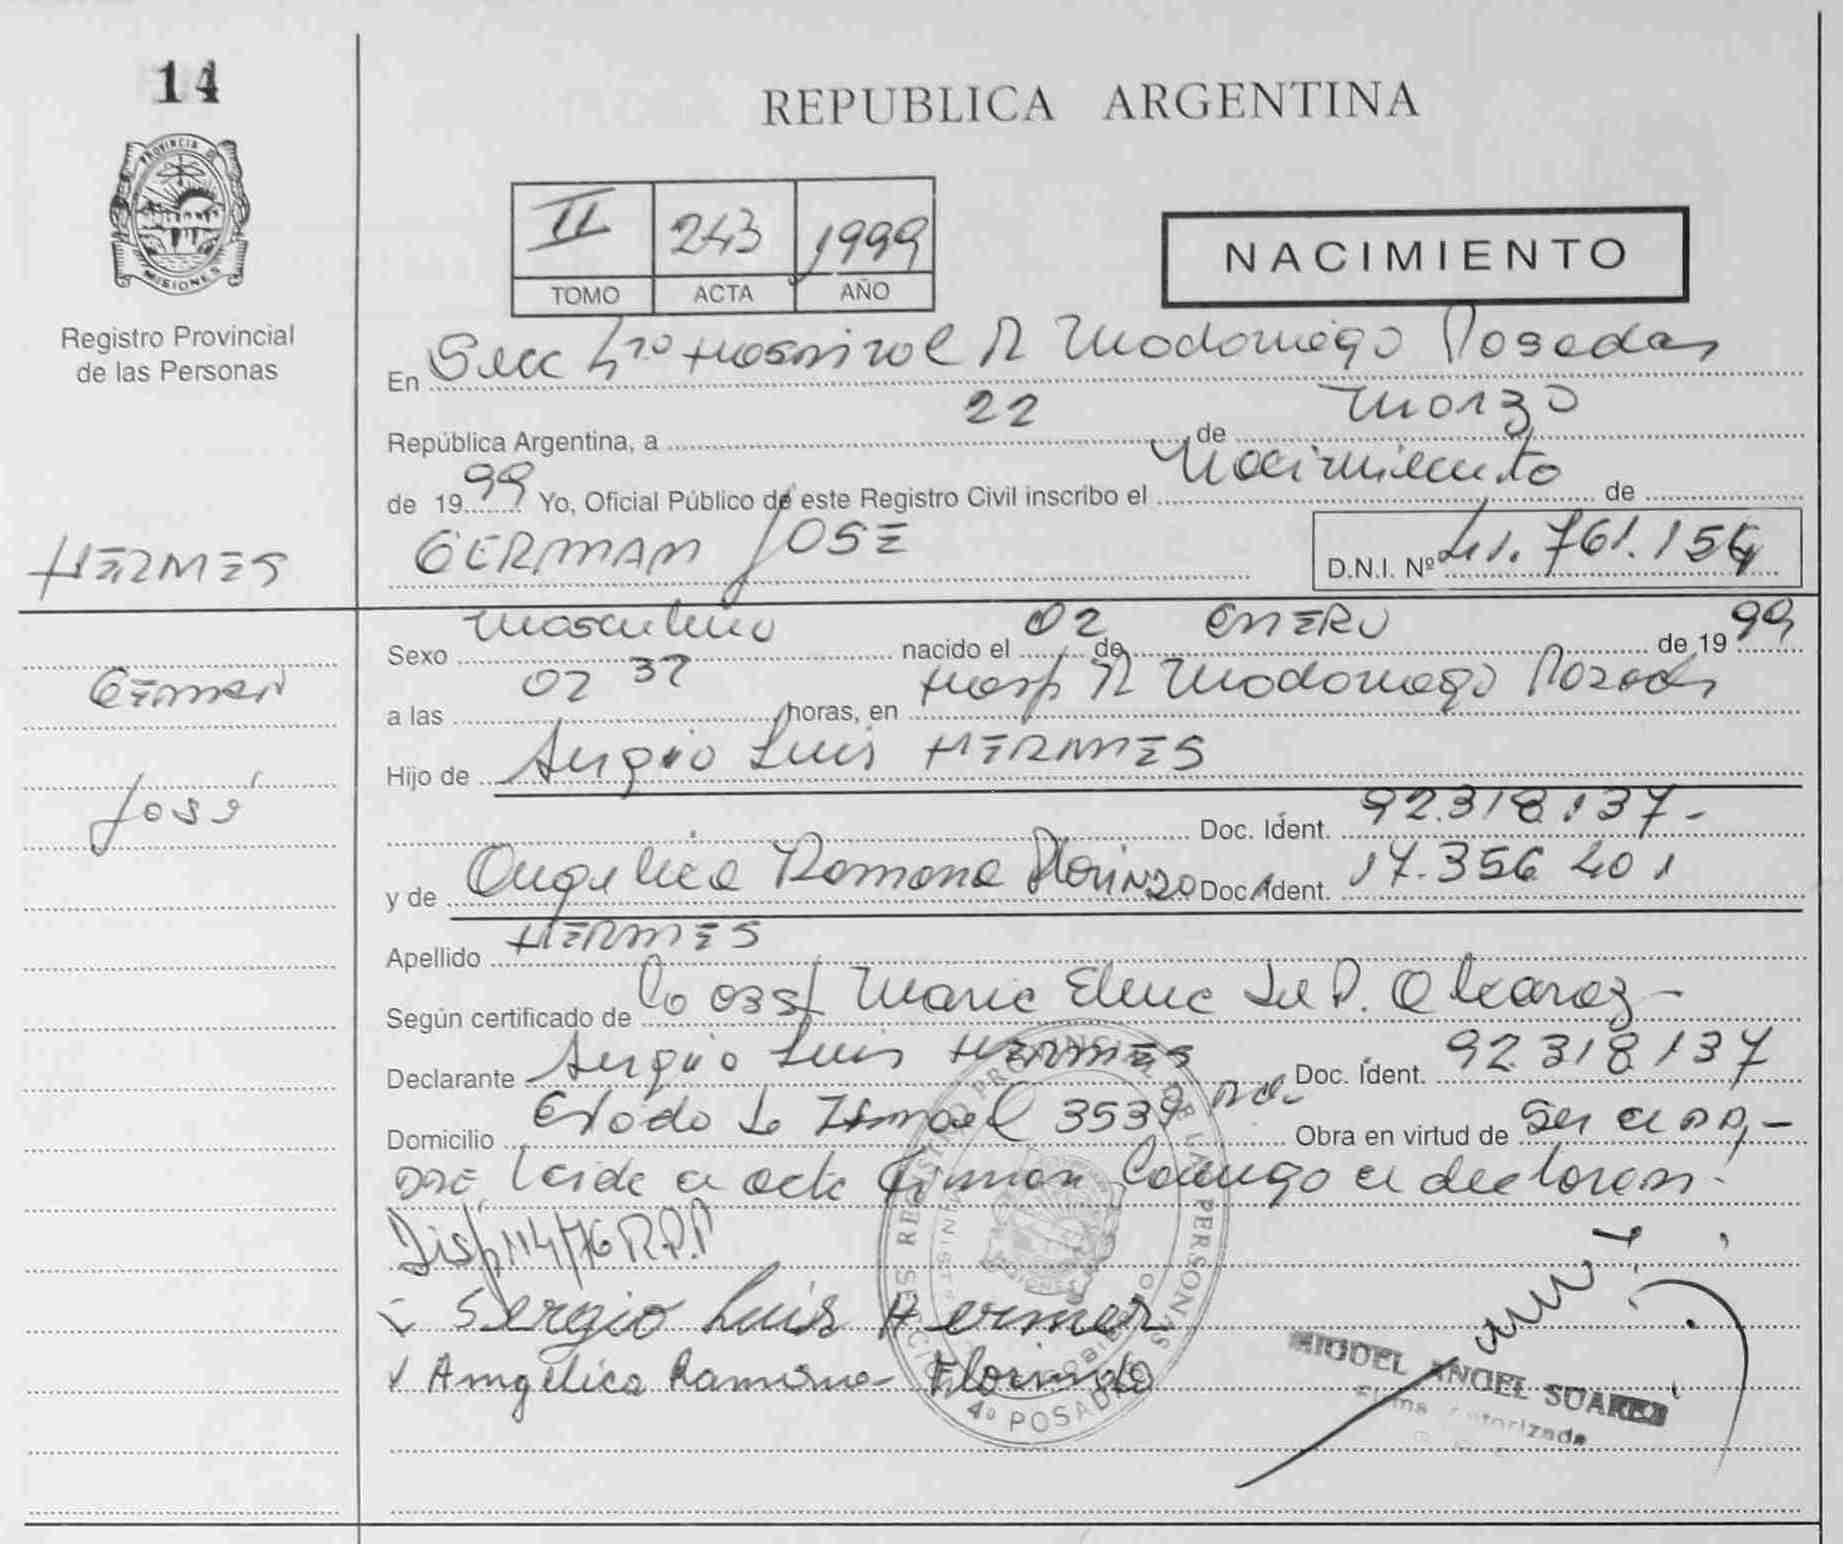 14
REPUBLICA ARGENTINA
PROVINCIA DE
MISIONES
Registro Provincial
de las Personas
II 243 1999
TOMO ACTA AÑO
NACIMIENTO
En Secc 4ta Hospital R Madariaga Posadas
República Argentina, a 22 de Marzo
de 1999 Yo, Oficial Público de este Registro Civil inscribo el Nacimiento de
HERMES
GERMAN JOSE
D.N.I. Nº 41.761.154
Sexo Masculino nacido el 02 de ENERO de 1999
German
a las 02 32 horas, en Hosp R Madariaga Posadas
Hijo de Sergio Luis HERMES
José
Doc. Ident. 92.318.137-
y de Angelica Ramona Florindo Doc. Ident. 17.356 401
Apellido HERMES
Según certificado de Maria Elena del P. Alcaraz-
Declarante Sergio Luis HERMES Doc. Ident. 92.318.137
Domicilio 3539 Obra en virtud de Ser el pp,-
Leida el acta Firman Conmigo el declaran
Disp 114/76 R.P.P
Sergio Luis Hermes
Angélica Ramona Florindo
REGISTRO PROVINCIAL DE LAS PERSONAS
SECCION 4º POSADAS
MIGUEL ANGEL SUAREZ
Firma Autorizada